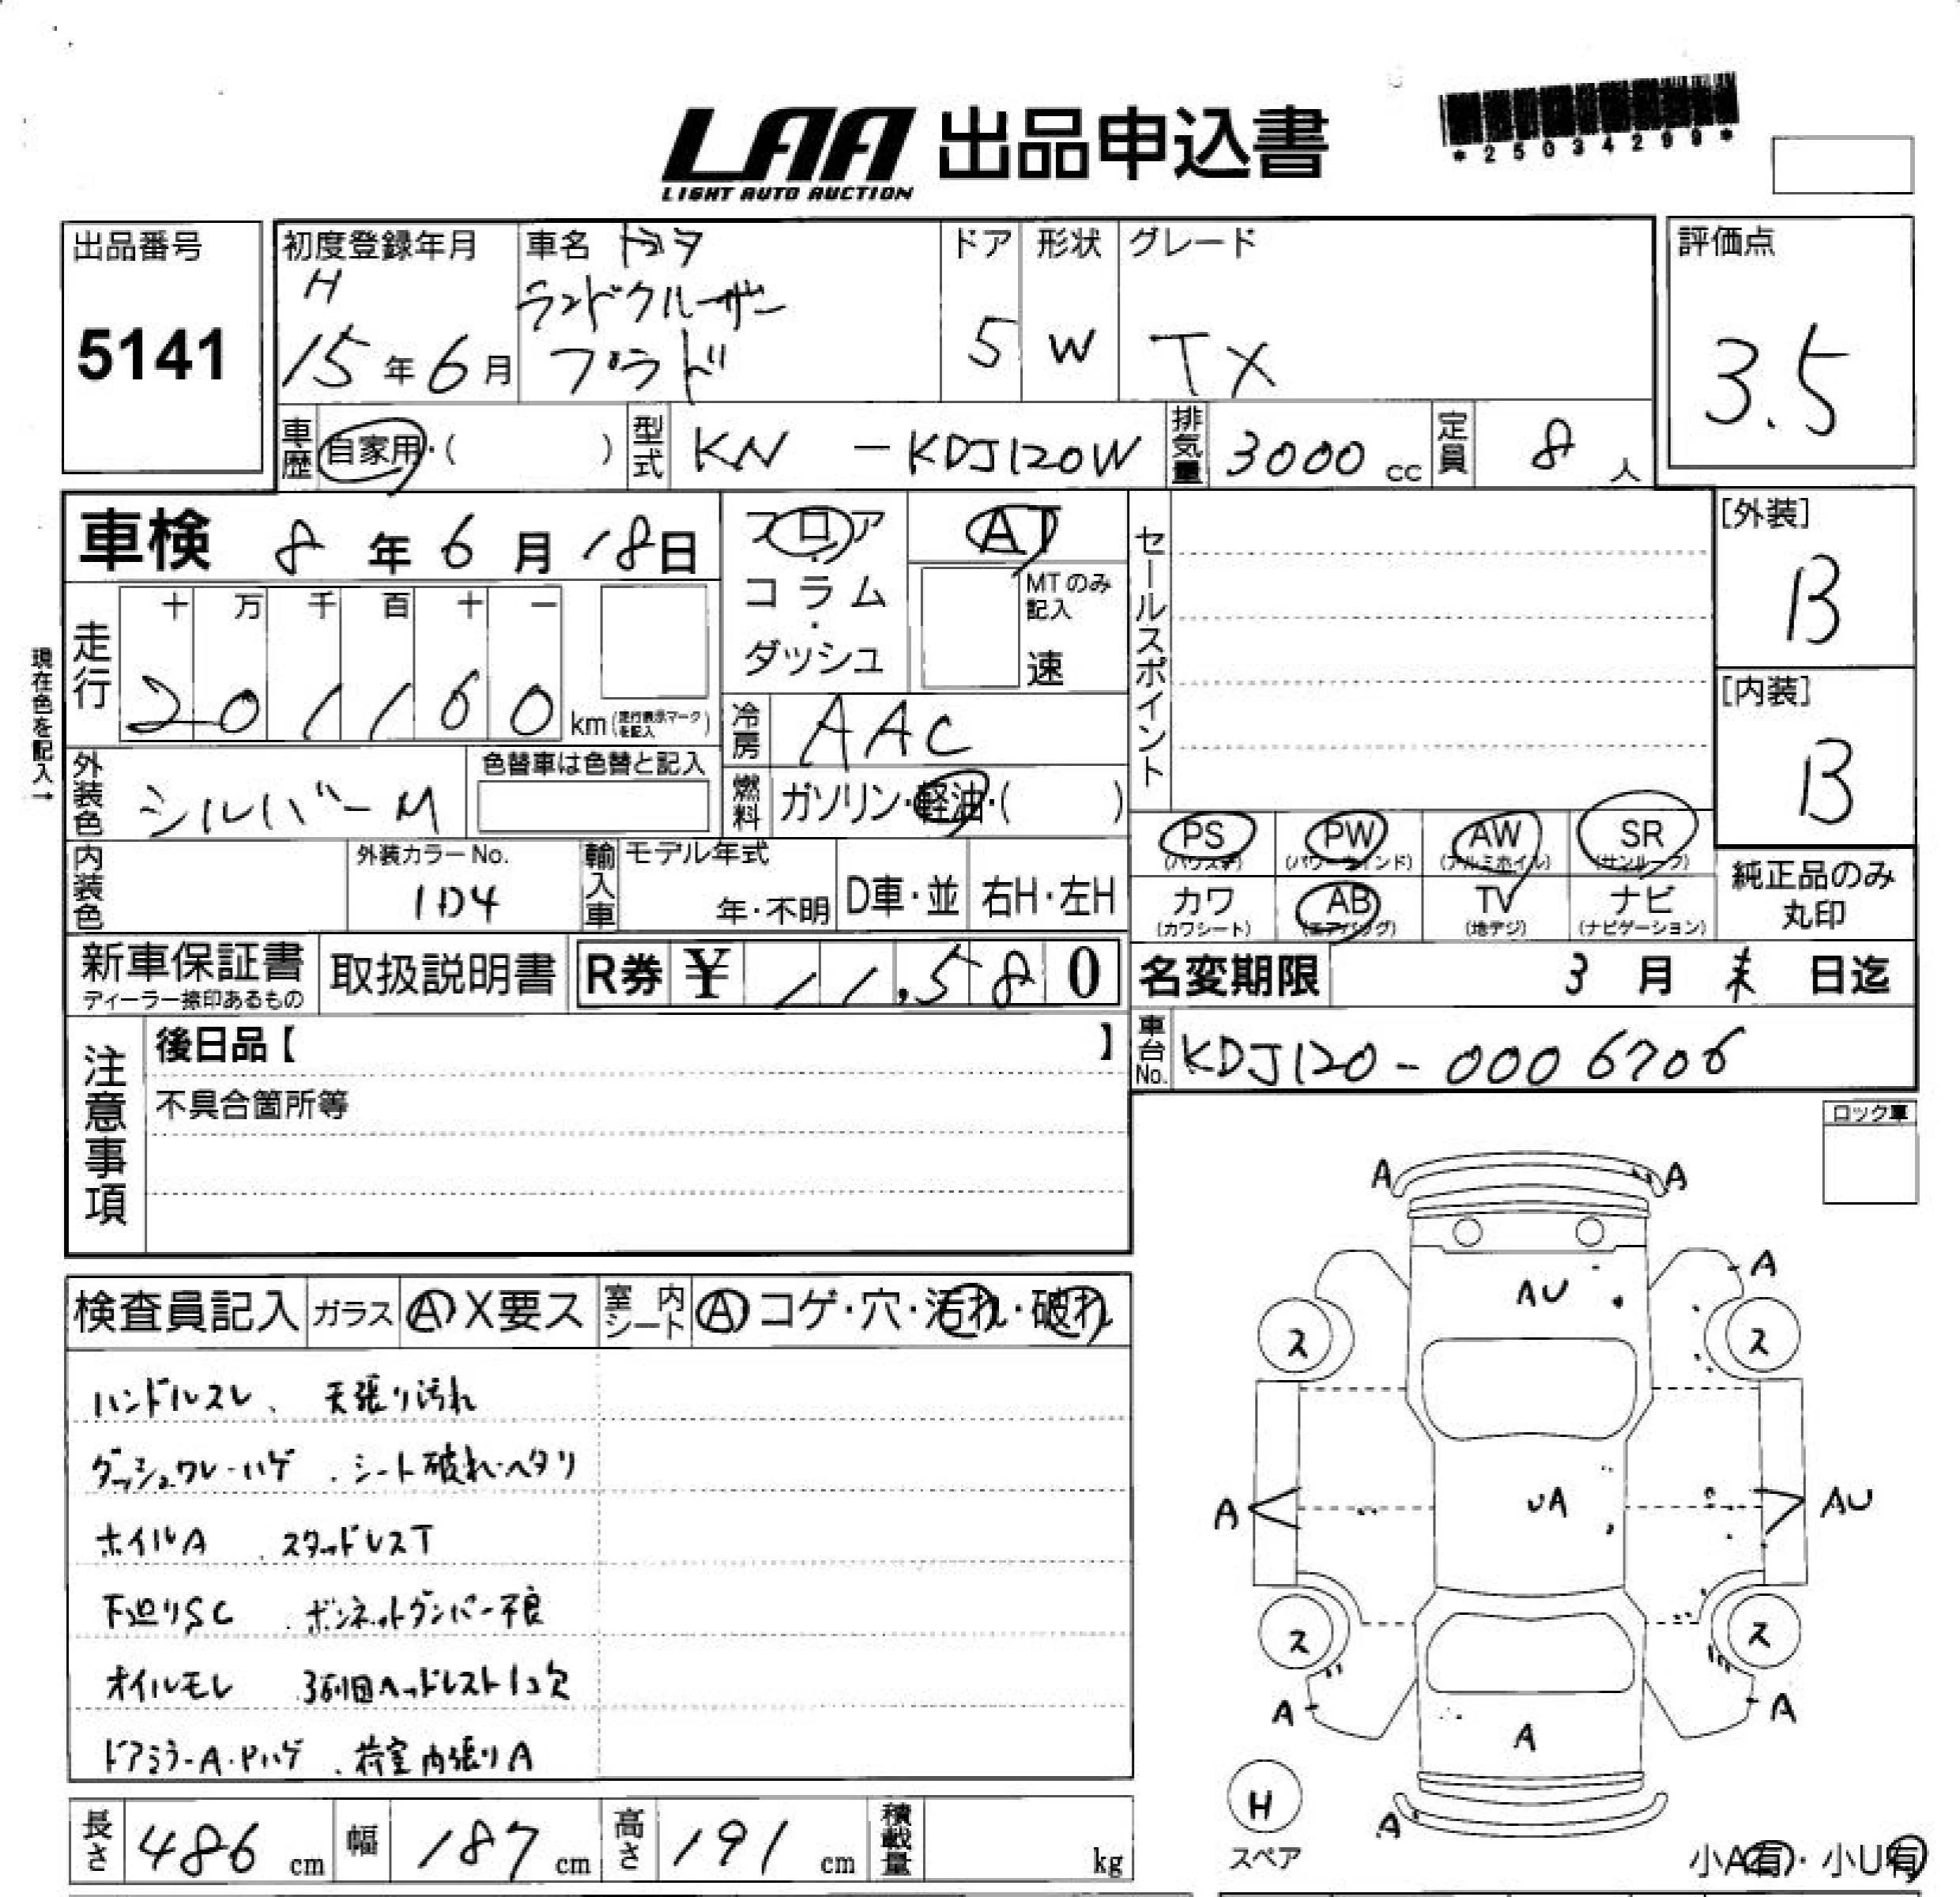 LAA 出品申込書
LIGHT AUTO AUCTION
*25034299*
出品番号
5141
初度登録年月
H
15年6月
車名 トヨタ
ランドクルーザー
プラド
ドア
5
形状
W
グレード
TX
評価点
3.5
車歴 自家用・( )
型式 KN - KDJ120W
排気量 3000 cc
定員 8 人
車検 8年6月18日
フロア
・
コラム
・
ダッシュ
AT
MTのみ
記入
速
セールスポイント
[外装]
B
[内装]
B
現在色を記入→
走行
十 万 千 百 十 一
2 0 1 1 6 0 km (走行表示マークを記入)
冷房 AAC
外装色 シルバーM
色替車は色替と記入
燃料 ガソリン・軽油・( )
PS (パワステ)
PW (パワーウインド)
AW (アルミホイル)
SR (サンルーフ)
内装色
外装カラーNo.
1D4
輸入車
モデル年式
年・不明
D車・並
右H・左H
カワ (カワシート)
AB (エアバッグ)
TV (地デジ)
ナビ (ナビゲーション)
純正品のみ
丸印
新車保証書
ディーラー捺印あるもの
取扱説明書
R券 ¥ 11,580
名変期限 3月末日迄
車台No. KDJ120-0006706
注意事項
後日品【 】
不具合箇所等
ロック車
検査員記入
ガラス A X要ス
室内シート A コゲ・穴・汚れ・破れ
ハンドルスレ、天張り汚れ
ダッシュワレ・ハゲ、シート破れ・ヘタリ
ホイルA、スタッドレスT
下廻りSC、ボンネットダンパー不良
オイルモレ 3列目ヘッドレスト1コ欠
ドアミラーA・Pハゲ、荷室内張りA
A A
A
AU
ス ス
A UA AU
ス ス
A A
A
H
A
スペア
小A有・小U有
長さ 486 cm
幅 187 cm
高さ 191 cm
積載量 kg